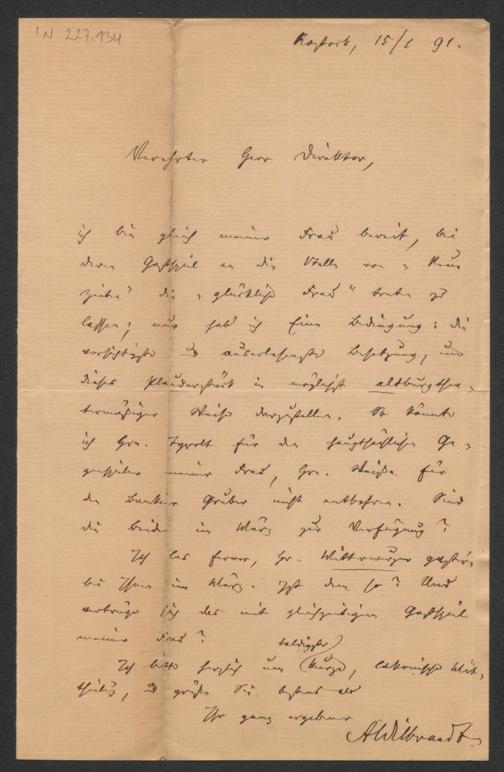 I.N. 227.134
Rostock, 15/1 91.
Verehrter Herr Direktor,
ich bin gleich meiner Frau bereit, bei
deren Gastspiel an die Stelle von „
die „glückliche Frau" treten zu
lassen; nur hab' ich Eine Bedingung: die
vorsichtigste und auserlesenste Besetzung, um
dieses Plauderstück in möglichst altburgthea-
termäßiger Weise darzustellen. So könnte
ich Hrn. Tyrolt für den hauptsächlichen Ge-
genspieler meiner Frau, Hrn. Weiße für
den Banker Gruber nicht entbehren. Sind
die beiden im März zur Verfügung?
Ich las ferner, Hr. Mitterwurzer gastire
bei Ihnen im März. Ist dem so? Und
vertrüge sich das mit gleichzeitigem Gastspiel
meiner Frau?
Ich bitte herzlich um baldigste
(kurze), lakonische Mit-
theilung, und grüße Sie bestens als
Ihr ganz ergebener
AWilbrandt.